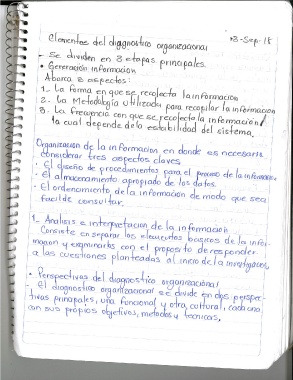 Elementos del diagnostico organizacional
•3-Sep-18
- Se dividen en 3 etapas principales.
• Generación información
Aborca 3 aspectos:
1.- La forma en que se recolecta la información
2.- La Metodología utilizada para recopilar la información
3.- La frecuencia con que se recolecta la información/
la cual depende de la estabilidad del sistema.
Organización de la información en donde es necesario
considerar tres aspectos claves
- El diseño de procedimientos para el proceso de la información
- El almacenamiento apropiado de los datos.
- El ordenamiento de la información de modo que sea
facil de consultar.
1.- Analisis e interpretación de la información
Consiste en separar los elementos basicos de la infor-
mación y examinarlos con el proposito de responder
a las cuestiones planteadas al inicio de la investigación
• Perspectivas del diagnostico organizacional
- El diagnostico organizacional se divide en dos perspec-
tivas principales, una funcional y otra cultural, cada una
con sus propios objetivos, metodos y tecnicas,